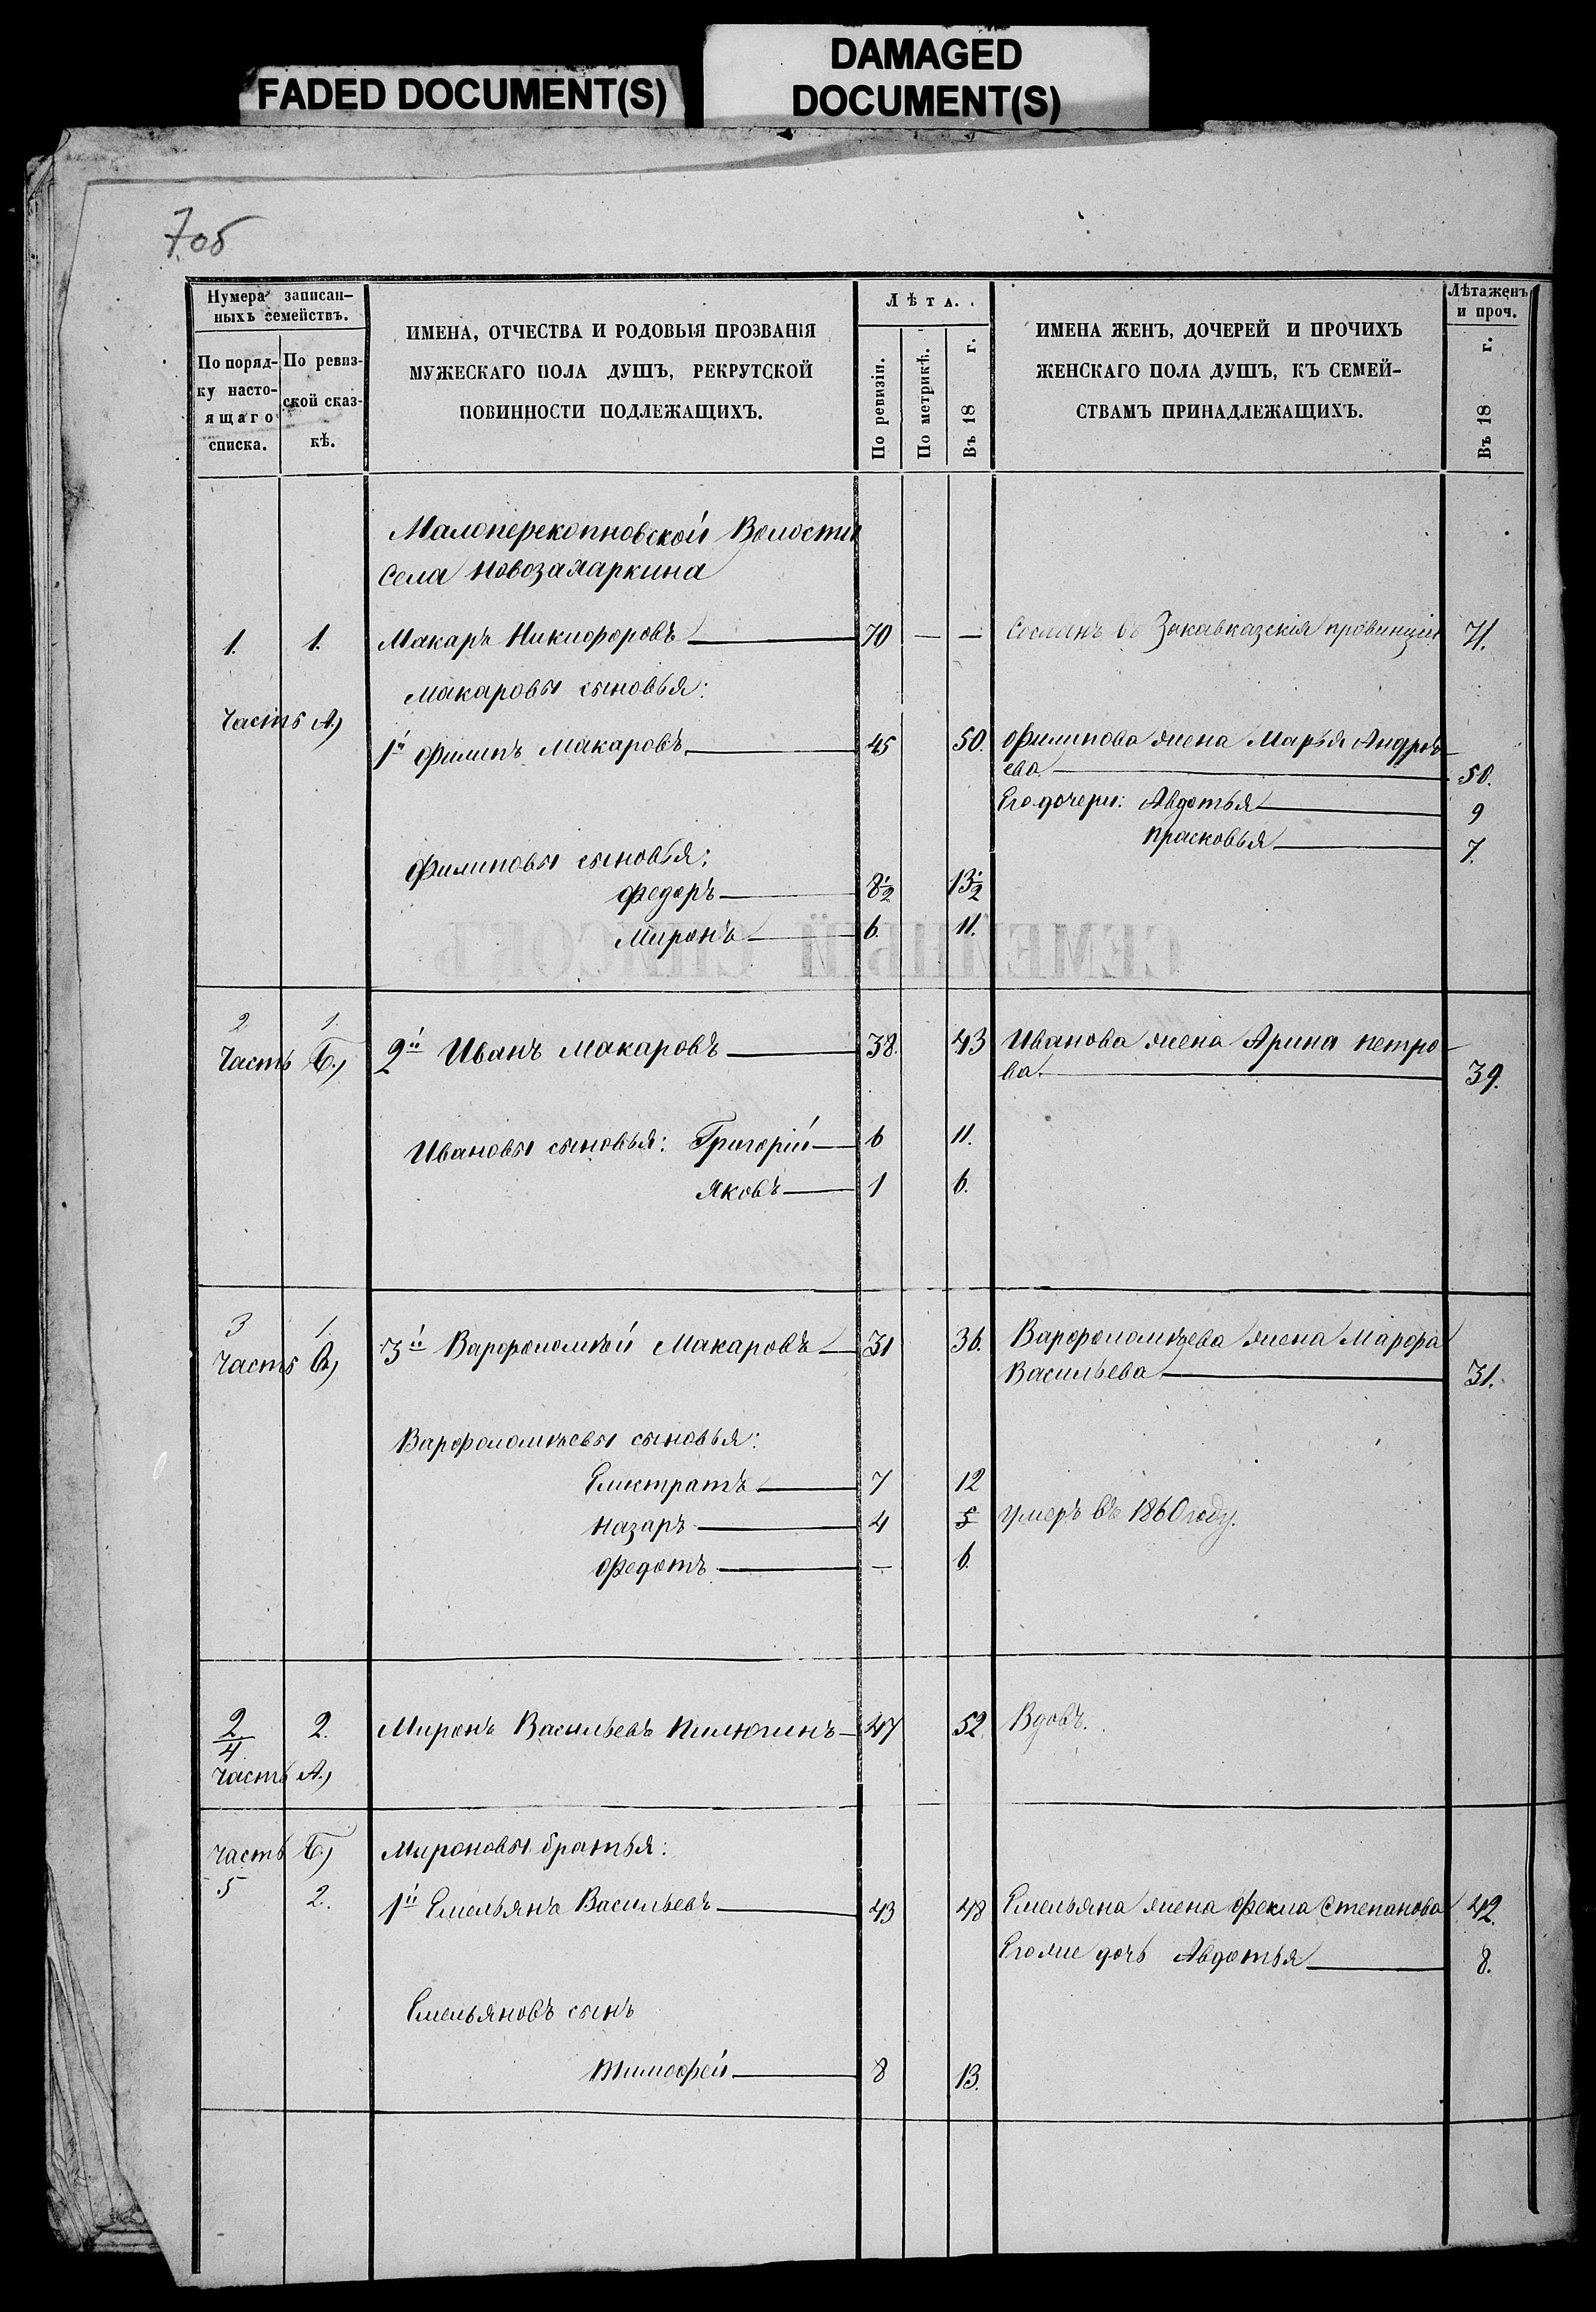 FADED DOCUMENT(S)
DAMAGED
DOCUMENT(S)
7об
Нумера записан-
ныхъ семействъ.
По поряд-
ку насто-
ящаго
списка.
По ревиз-
ской сказ-
кѣ.
ИМЕНА, ОТЧЕСТВА И РОДОВЫЯ ПРОЗВАНІЯ
МУЖЕСКАГО ПОЛА ДУШЪ, РЕКРУТСКОЙ
ПОВИННОСТИ ПОДЛЕЖАЩИХЪ.
ЛѢТА.
По ревизіи.
По метрикѣ.
Въ 18 г.
ИМЕНА ЖЕНЪ, ДОЧЕРЕЙ И ПРОЧИХЪ
ЖЕНСКАГО ПОЛА ДУШЪ, КЪ СЕМЕЙ-
СТВАМЪ ПРИНАДЛЕЖАЩИХЪ.
Лѣта женъ
и проч.
Въ 18 г.
Малоперекопновской Волости
Села Новозахаркина
1. 1. Макаръ Никифоровъ 70 — — Сосланъ въ Закавказскія провинціи 71.
Макаровы сыновья:
Часть А)
1й Филипъ Макаровъ 45 50. Филипова жена Марья Андрѣ-
ева 50.
Его дочери: Авдотья 9
Прасковья 7.
Филиповы сыновья:
Федоръ 8½ 13½
Миронъ 6. 11.
2 1.
Часть Б) 2й Иванъ Макаровъ 38. 43 Иванова жена Арина Петро-
ва. 39.
Ивановы сыновья: Григорій 6 11.
Яковъ 1 6.
3 1.
Часть В) 3й Варфоломѣй Макаровъ 31 36. Варфоломѣева жена Марфа
Васильева 31.
Варфоломѣевы сыновья:
Елистратъ 7 12
Назаръ 4 5 умеръ въ 1860 году.
Федотъ — 6.
2/4 2. Миронъ Васильевъ Пилюгинъ 47 52 Вдовъ.
Часть А)
Часть Б) Мироновы братья:
5 2. 1й Емельянъ Васильевъ 43 48 Емельяна жена Фекла Степанова 42.
Его же дочь Авдотья 8.
Емельяновъ сынъ
Тимофей 8 13.